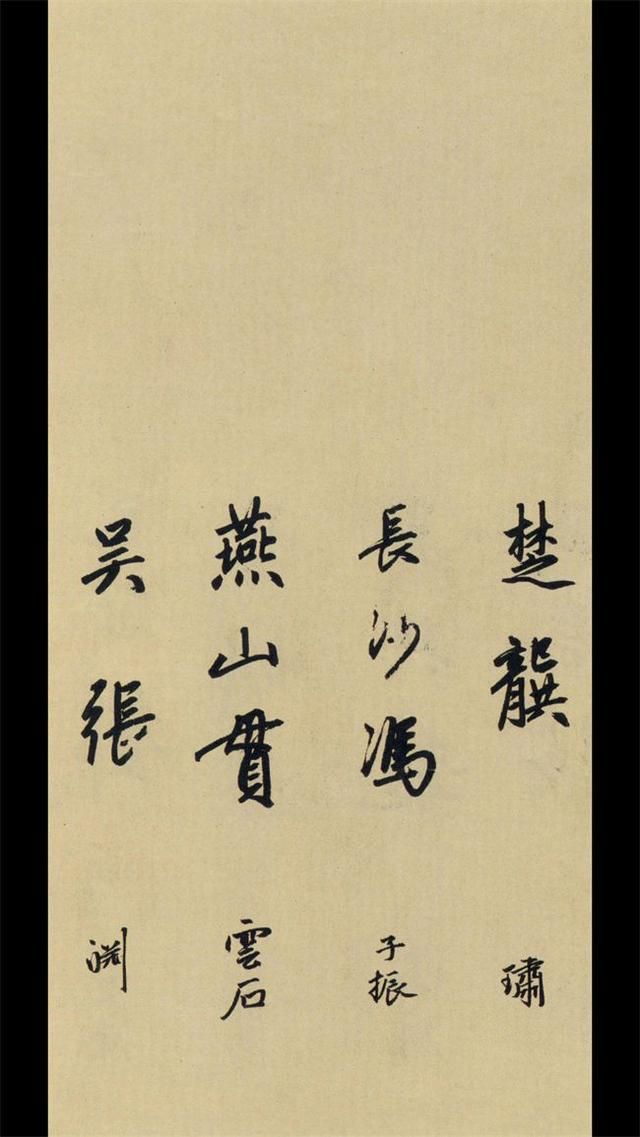 楚龔 璛
長沙馮 子振
燕山貫 雲石
吴張 渕